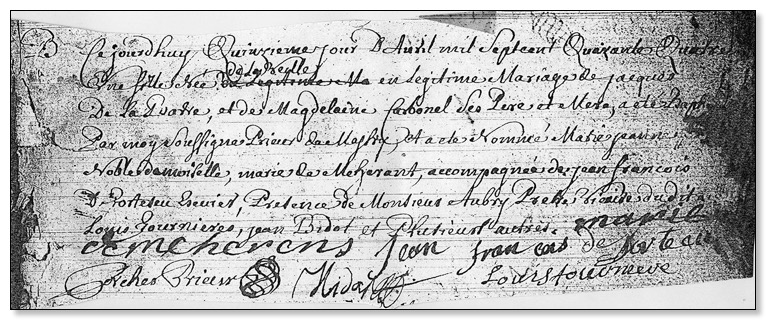 B Cejourdhuy Quinzieme jour D Avril mil Septcent Quarante Quatre
Une fille née de La Veille en Legitime Mariage de jacques
De La Poatre, et de Magdelaine Carbonel Ses Pere et Mere, a eté Baptisé
Par moy Soussigné Prieur de Mastre, et a eté Nommée Marie jeanne
Noble demoiselle, marie de Meherant, accompagnée de jean francois
D Ecuier, Presence de Monsieur Aubry Pretre vicaire dudit
Louis fournieres, jean Bidot et Plusieurs autres. marie
demeherens jean francois de
Prieur Louis fourneve